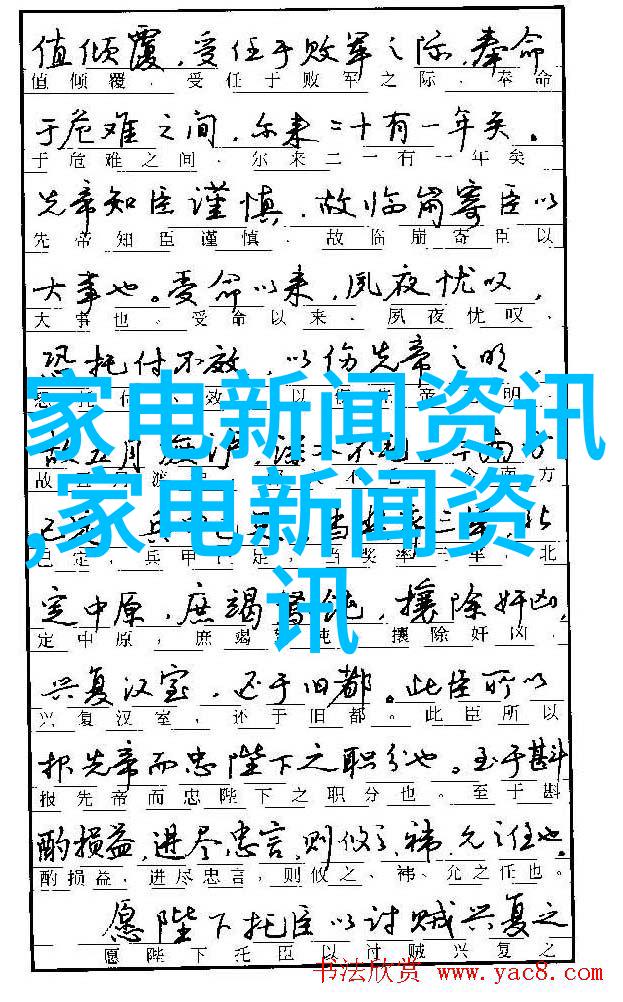 值倾覆，受任于败军之际，奉命
值倾覆，受任于败军之际，奉命
于危难之间，尔来二十有一年矣。
于危难之间，尔来二一有一年矣
先帝知臣谨慎，故临崩寄臣以
先帝知臣谨慎，故临崩寄臣以
大事也。受命以来，夙夜忧叹，
大事也。受命以来，夙夜忧叹，
恐托付不效，以伤先帝之明，
家电新闻资讯
,家电新闻资
讯
定中原，庶竭驽钝，攘除奸凶，
定中原，庶竭钝，攘除奸凶，
兴复汉室，还于旧都。此臣所以
兴复汉室，还于旧都。此臣所以
报先帝而忠陛下之职分也。至于斟
报先帝而忠陛下之职分也。至于斟
酌损益，进尽忠言，则攸之、祎、允之任也。
酌损益，进尽忠言，则攸之、祎、允之任也。
愿陛下托臣以讨贼兴复之
愿陛下托臣以讨贼兴复之
书法欣赏 www.yac8.com